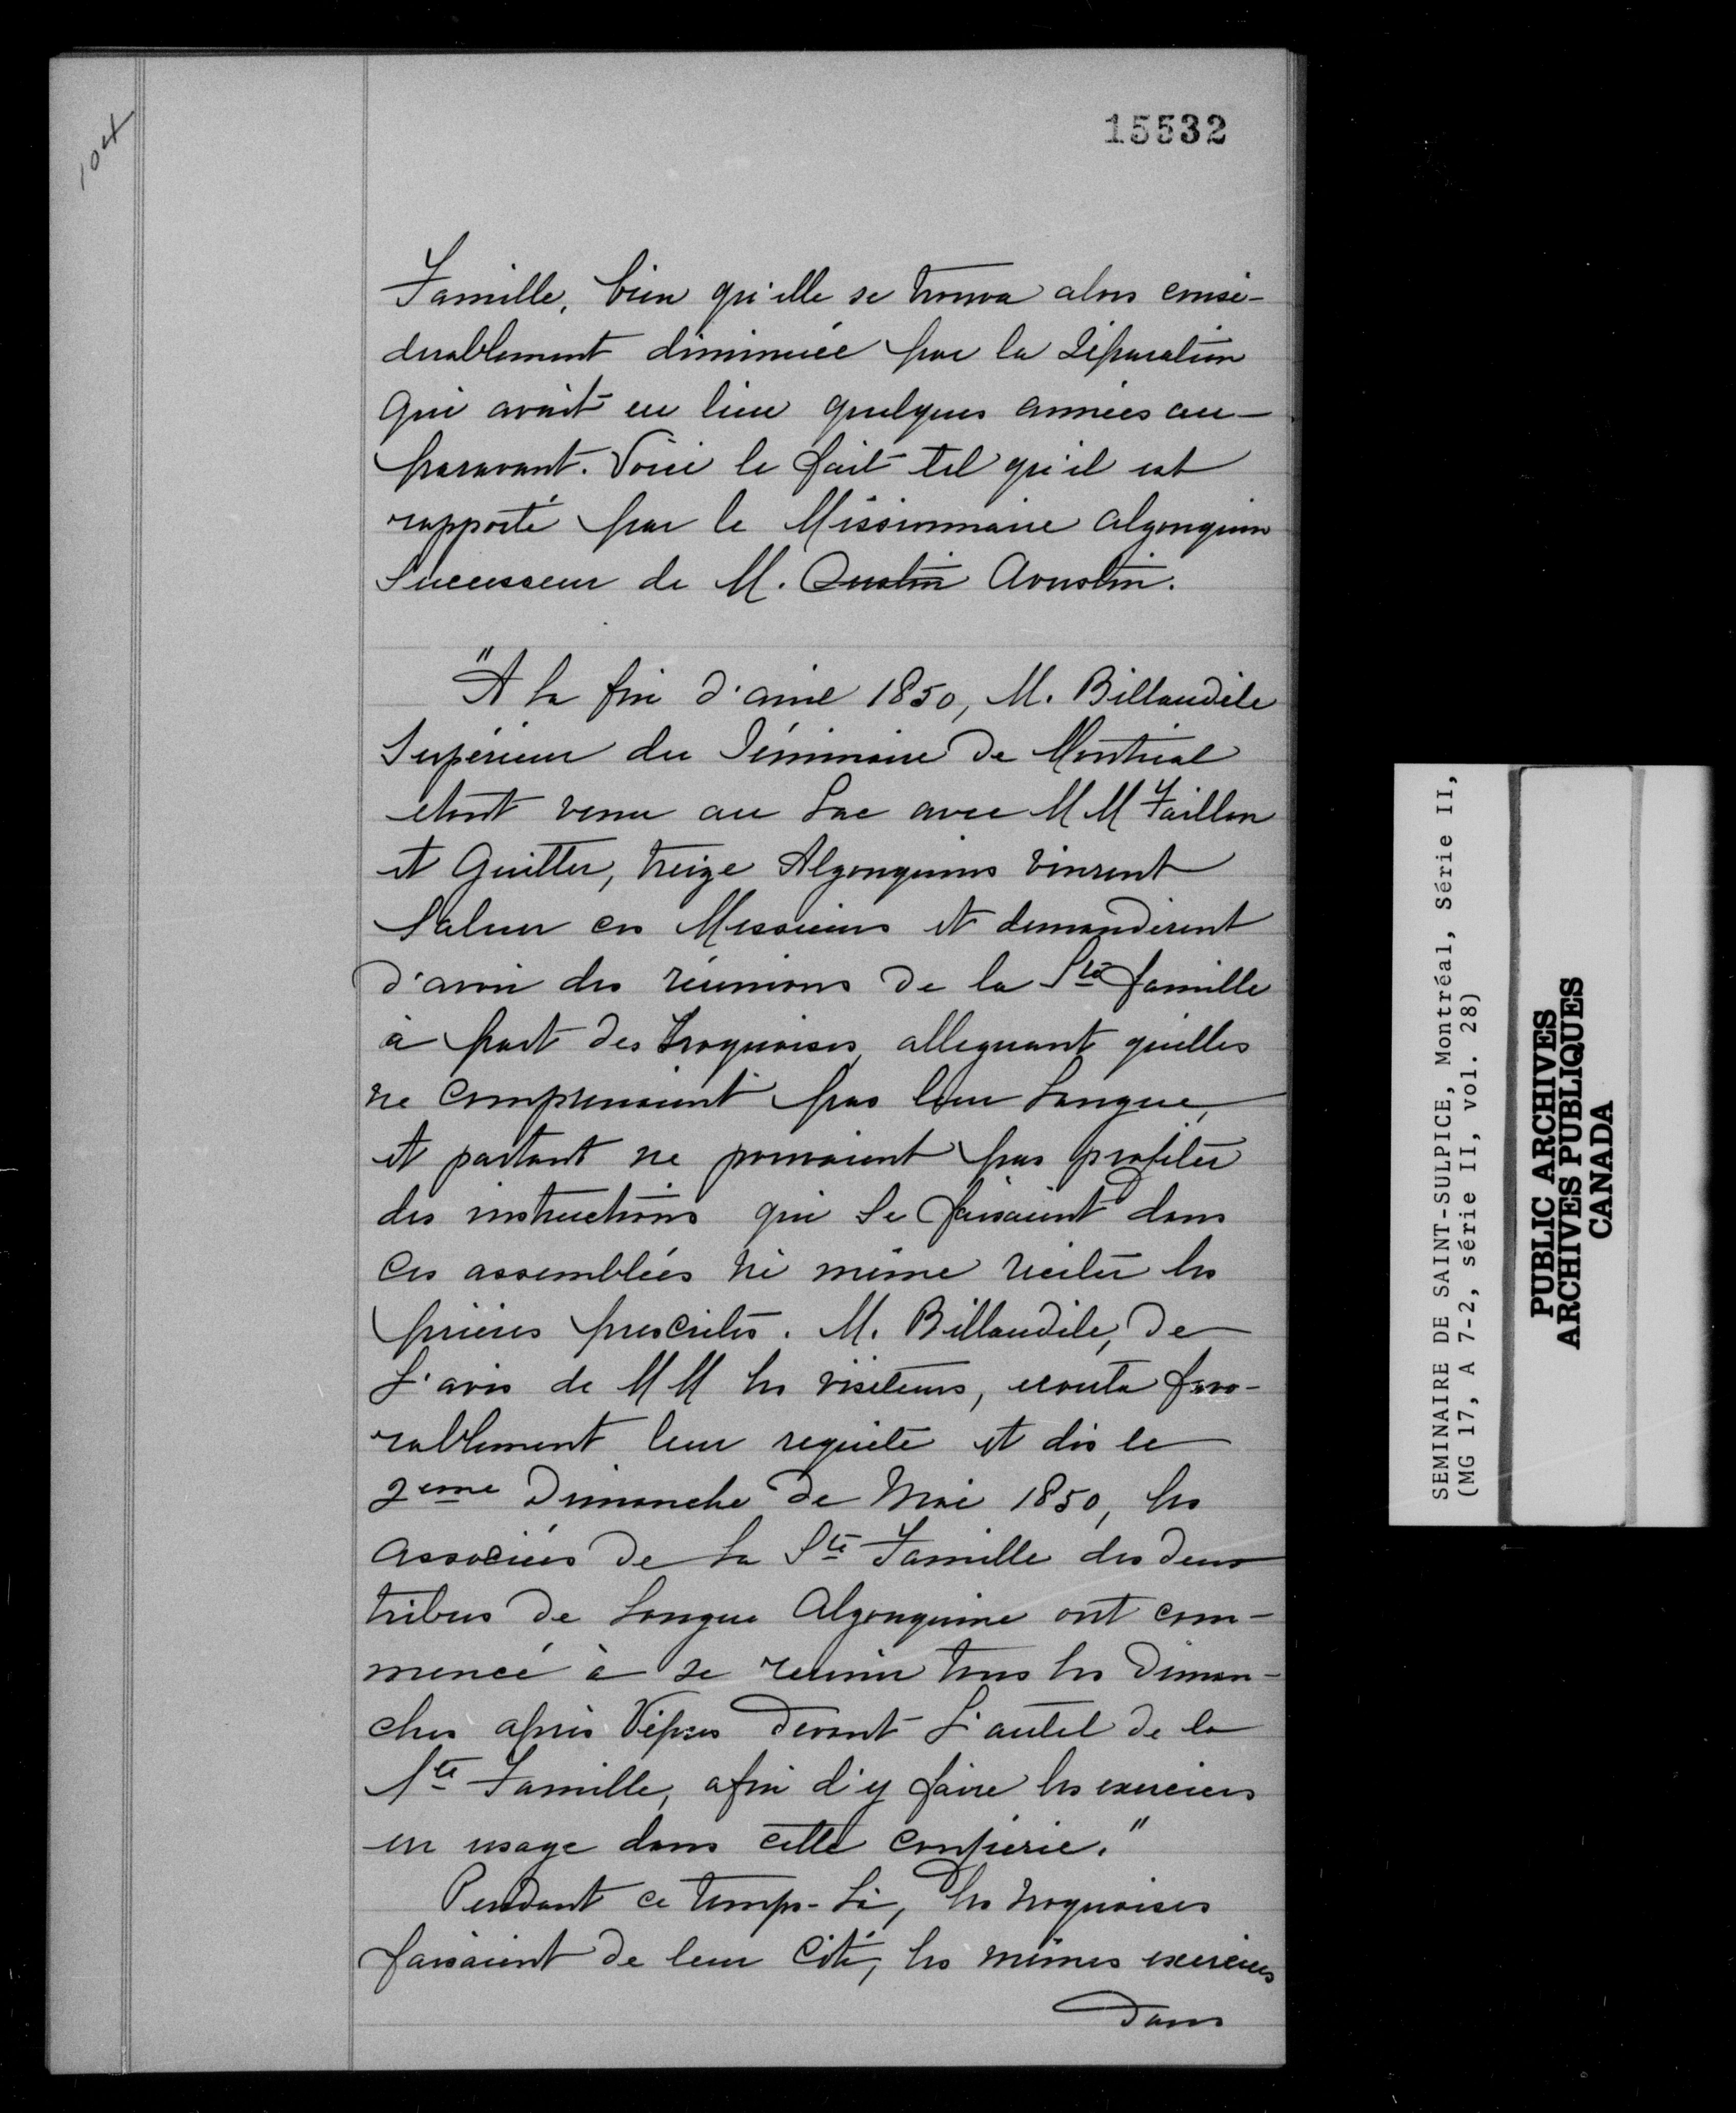 104
15532
Famille, bien qu'elle se trouva alors consi-
derablement diminuée par la séparation
qui avait eu lieu quelques années au-
paravant. Voici le fait tel qu'il est
rapporté par le Missionnaire algonquin
Successeur de M. Oustin Avustin.
"A la fin d'avril 1850, M. Billaudèle
Supérieur du Séminaire de Montréal
étant venu au Lac avec MM Faillon
et Guitter, treize Algonquines vinrent
Saluer ces Messieurs et demandèrent
d'avoir des réunions de la Ste famille
à part des Iroquoises, alleguant qu'elles
ne comprenaient pas leur Langue,
et partant ne pouvaient pas profiter
des instructions qui se faisaient dans
ces assemblées ni même réciter les
prières prescrites. M. Billaudèle, de
L'avis de MM les visiteurs, écouta favo-
rablement leur requête et dès le
2eme Dimanche de Mai 1850, les
associées de la Ste Famille des deux
tribus de Langue Algonquine ont com-
mencé à se reunir tous les Diman-
ches après Vêpres devant L'autel de la
Ste Famille, afin d'y faire les exercices
en usage dans cette confrérie."
Pendant ce temps-là, les Iroquoises
faisaient de leur Côté, les mêmes exercices
dans
SEMINAIRE DE SAINT-SULPICE, Montréal, Série II,
(MG 17, A 7-2, série II, vol. 28)
PUBLIC ARCHIVES
ARCHIVES PUBLIQUES
CANADA